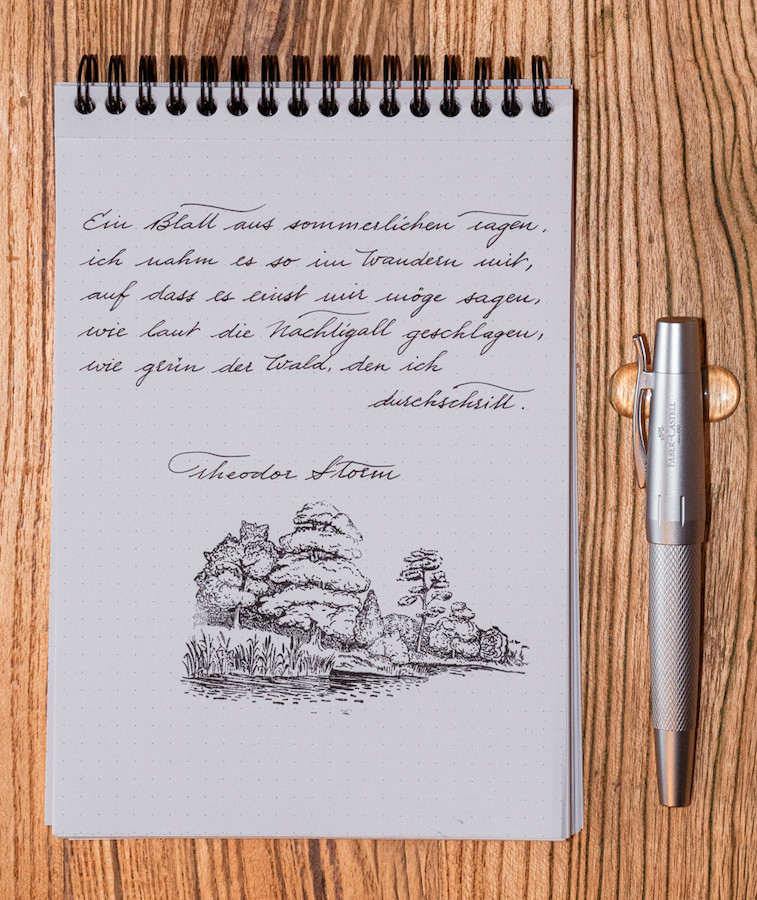 Ein Blatt aus sommerlichen Tagen,
ich nahm es so im Wandern mit,
auf dass es einst mir möge sagen,
wie laut die Nachtigall geschlagen,
wie grün der Wald, den ich
durchschritt.
Theodor Storm
FABER-CASTELL